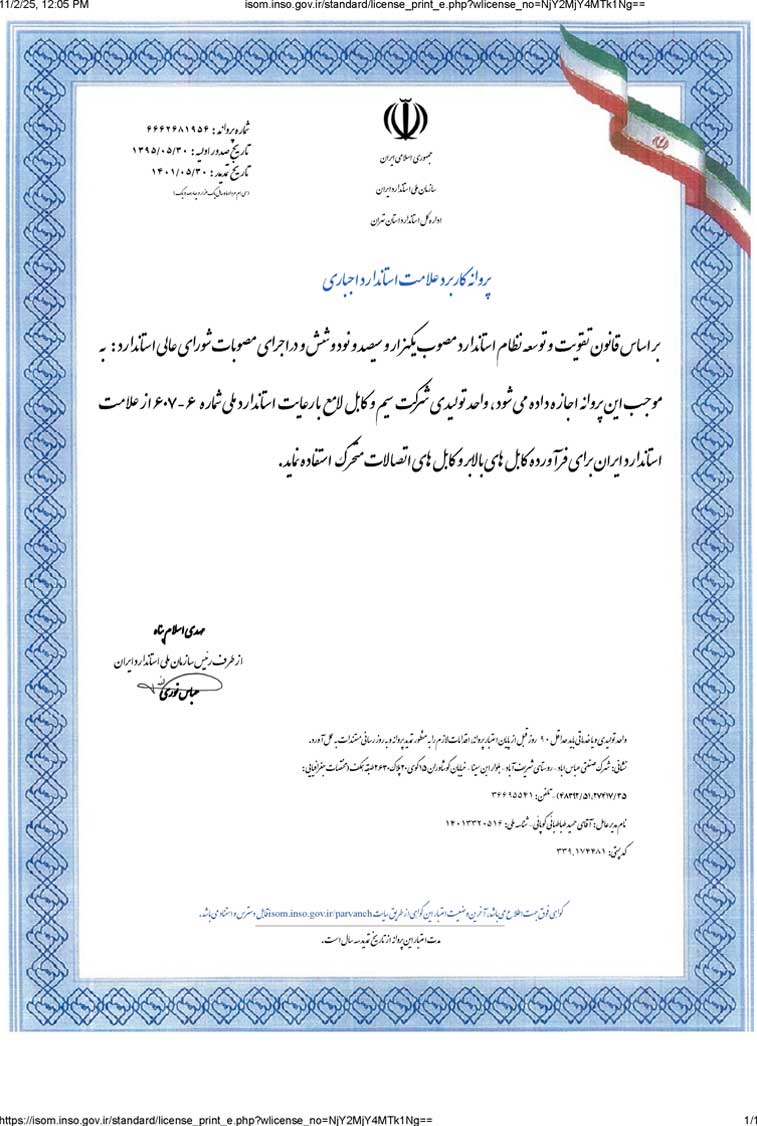 11/2/25, 12:05 PM
isom.inso.gov.ir/standard/license_print_e.php?wlicense_no=NjY2MjY4MTk1Ng==
شماره پروانه : ۶۶۶۲۶۸۱۹۵۶
تاریخ صدور اولیه : ۱۳۹۵/۰۵/۳۰
تاریخ تمدید : ۱۴۰۱/۰۵/۳۰
(سی ام مرداد ماه سال یک هزار و چهارصد و یک)
جمهوری اسلامی ایران
سازمان ملی استاندارد ایران
اداره کل استاندارد استان تهران
پروانه کاربرد علامت استاندارد اجباری
بر اساس قانون تقویت و توسعه نظام استاندارد مصوب یکهزار و سیصد و نود و شش و در اجرای مصوبات شورای عالی استاندارد : به
موجب این پروانه اجازه داده می شود، واحد تولیدی شرکت سیم و کابل لامع با رعایت استاندارد ملی شماره ۶-۶۰۷ از علامت
استاندارد ایران برای فرآورده کابل های بالابر و کابل های اتصالات متحرک استفاده نماید.
مهدی اسلام پناه
از طرف رئیس سازمان ملی استاندارد ایران
عباس نوری
واحد تولیدی و یا خدماتی باید حداقل ۹۰ روز قبل از پایان اعتبار پروانه، اقدامات لازم را به منظور تمدید پروانه و به روز رسانی مستندات به عمل آورد.
نشانی: شهرک صنعتی عباس اباد - روستای شریف آباد - بلوار ابن سینا - خیابان کوشاوران ۱۵ کوی ۲۰ پلاک ۲۶۳۰ طبقه همکف (مختصات جغرافیایی:
۴۸۳۹۲/۵۱,۲۷۴۱۷/۳۵) - تلفن: ۳۶۶۹۵۵۴۱
نام مدیر عامل: آقای حمید طباطبائی کوپائی - شناسه ملی: ۱۴۰۱۳۳۲۰۵۱۶
کد پستی: ۳۳۹,۱۷۴۴۸۱
گواهی فوق جهت اطلاع می باشد، آخرین وضعیت اعتبار این گواهی از طریق سایت isom.inso.gov.ir/parvaneh قابل دسترس و استناد می باشد.
مدت اعتبار این پروانه از تاریخ تمدید سه سال است.
https://isom.inso.gov.ir/standard/license_print_e.php?wlicense_no=NjY2MjY4MTk1Ng==
1/1